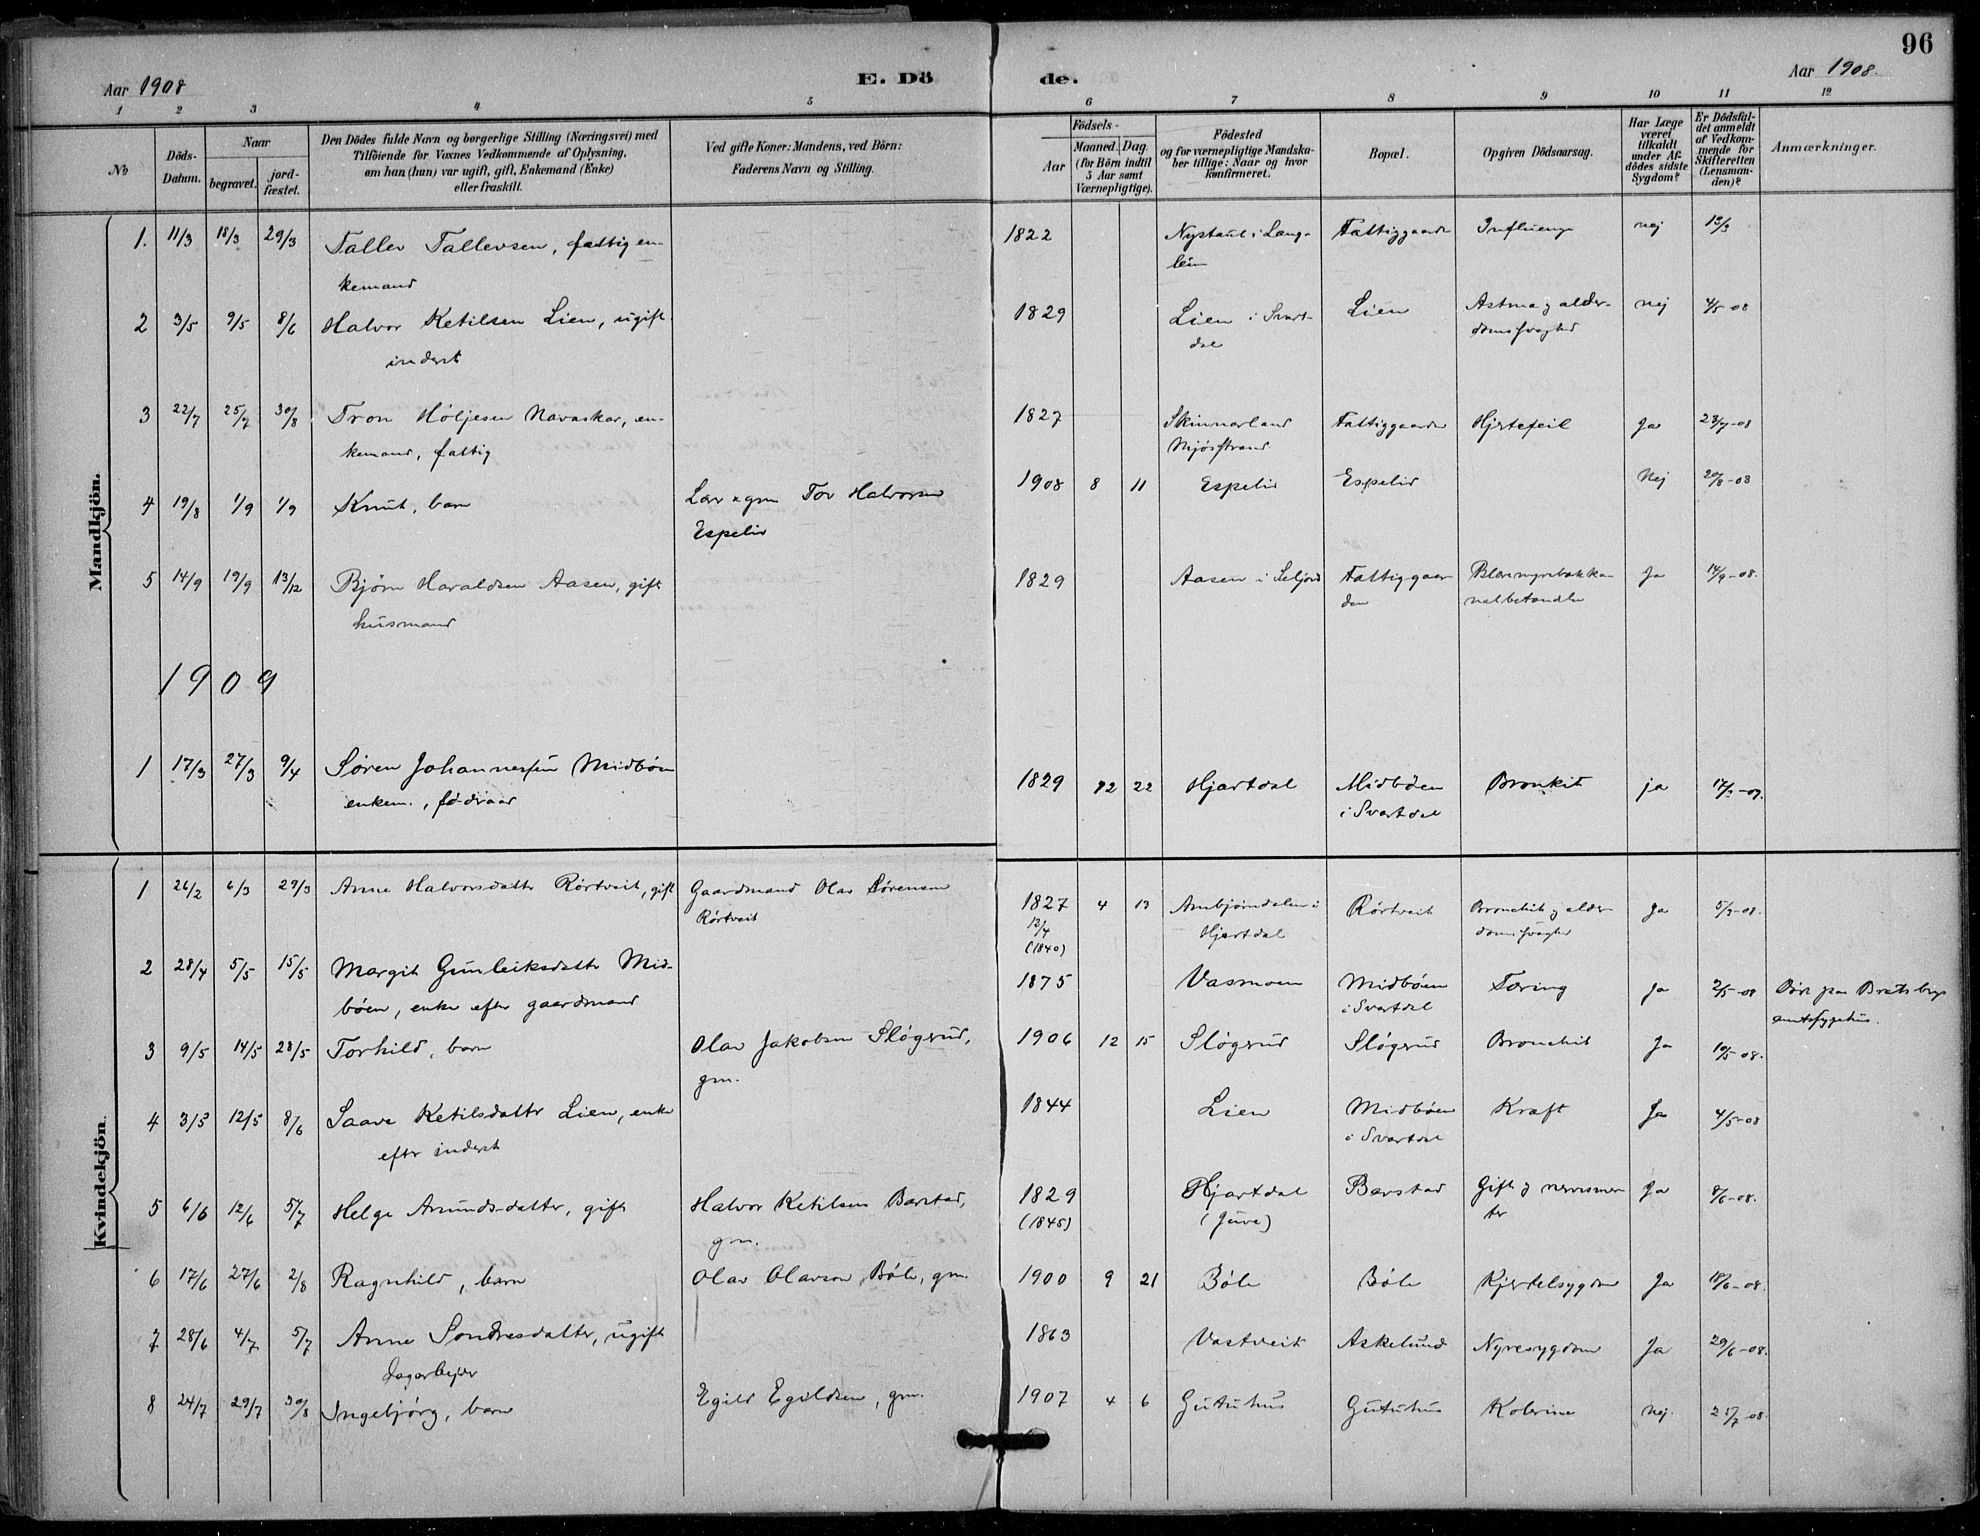 96
Aar 1908
E. Döde.
Aar 1908.
1 2 3 4 5 6 7 8 9 10 11 12
No
Döds-Datum.
Naar
begravet.
jord-fæstet.
Den Dödes fulde Navn og borgerlige Stilling (Næringsvei) med
Tilföiende for Voxnes Vedkommende af Oplysning,
om han (hun) var ugift, gift, Enkemand (Enke)
eller fraskilt.
Ved gifte Koner: Mandens, ved Börn:
Faderens Navn og Stilling.
Födsels-
Aar
Maaned. Dag.
(for Börn indtil
5 Aar samt
Værnepligtige).
Födested
og for værnepligtige Mandska-
ber tillige: Naar og hvor
konfirmeret.
Bopæl.
Opgiven Dödsaarsag.
Har Læge
været
tilkaldt
under Af-
dödes sidste
Sygdom?
Er Dödsfal-
det anmeldt
af Vedkom-
mende for
Skifteretten
(Lensman-
den)?
Anmærkninger.
Mandkjön.
1. 11/3 18/3 29/3 Tallev Tallevsen, fattig en- 1822 Nystaul i Lang- Fattiggaarden Influenza nej 13/3
kemand leim
2 3/5 9/5 8/6 Halvor Ketilsen Lien, ugift 1829 Lien i Svart- Lien Astma og alder- nej 4/5-08
inderst dal domssvaghed
3 22/7 25/7 30/8 Tron Høljesen Navaskar, en- 1827 Skinnarland Fattiggaarden Hjertefeil Ja 23/7-08
kemand, fattig Mjøsstrand
4 19/8 1/9 1/9 Knut, barn Lær. & gm Tov Halvorsen 1908 8 11 Espelid Espelid Nej 20/8-08
Espelid
5 14/9 19/9 13/12 Bjørn Haraldsen Aasen, gift 1829 Aasen i Seljord Fattiggaar- Blærenyrebækka- Ja 14/9-08.
husmand den
1909
1 17/3 27/3 9/4 Søren Johannessen Midbøen 1829 12 22 Hjartdal Midbøen Bronkit ja 17/3-09.
enkem., fødraad i Svartdal
Kvindekjön.
1 26/2 6/3 29/3 Anne Halvorsdatter Rørtveit, gift Gaardmand Olav Sørensen 1827 4 13 Ambjørndalen i Rørtveit Bronchit og alder- Ja 5/3-08.
Rørtveit 12/4 Hjartdal domssvaghed
(1840)
2 28/4 5/5 15/5 Margit Gunleiksdatter Mid- 1875 Vasmoen Midbøen Tæring Ja 2/5-08 Død paa Bratsberg
bøen, enke efter gaardmand i Svartdal amtssygehus.
3 9/5 14/5 28/5 Torhild, barn Olav Jakobsen Sløgrud, 1906 12 15 Sløgrud Sløgrud Bronchit Ja 10/5-08.
gm.
4 3/5 12/5 8/6 Saave Ketilsdatter Lien, enke 1844 Lien Midbøen Kræft Ja 4/5-08
efter inderst i Svartdal
5 6/6 12/6 5/7 Helge Amunds-datter, gift Halvor Ketilsen Barstad, 1829 Hjartdal Barstad Gift og nervesmer- Ja 8/6-08.
gm. (1845) (Juve) ter
6 17/6 27/6 2/8 Ragnhild, barn Olav Olavson Bøle, gm. 1900 9 21 Bøle Bøle Kjertelsygdom Ja 18/6-08.
7 28/6 4/7 5/7 Anne Sondresdatter, ugift 1863 Vastveit Askelund Nyresygdom Ja 29/6-08.
dagarbejder
8 24/7 29/7 30/8 Ingebjørg, barn Egild Egildsen, gm. 1907 4 6 Gutuhus Gutuhus Kolerine Nej. 25/7-08.